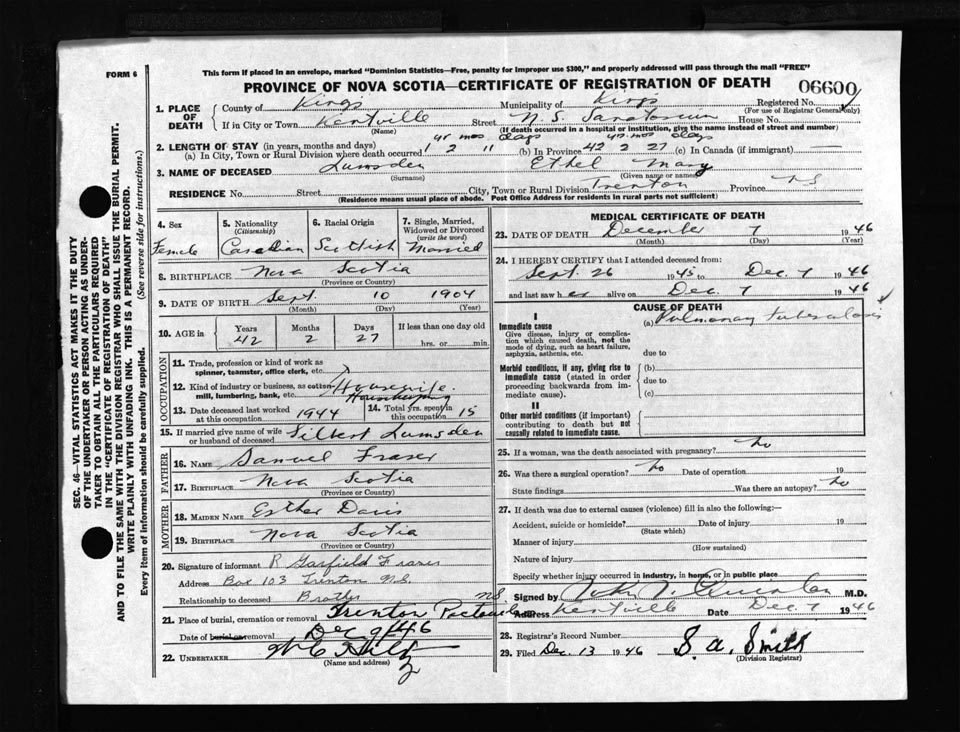 FORM 6
This form if placed in an envelope, marked "Dominion Statistics—Free, penalty for improper use $300," and properly addressed will pass through the mail "FREE"
PROVINCE OF NOVA SCOTIA—CERTIFICATE OF REGISTRATION OF DEATH 06600
1. PLACE OF DEATH
County of Kings Municipality of Kings Registered No.
(For use of Registrar General only)
If in City or Town Kentville Street N. S. Sanatorium House No.
(Name) (If death occurred in a hospital or institution, give the name instead of street and number)
yr mos days yrs mos days
2. LENGTH OF STAY (in years, months and days)
(a) In City, Town or Rural Division where death occurred 1 2 11 (b) In Province 42 2 27 (c) In Canada (if immigrant) —
3. NAME OF DECEASED Lumsden Ethel Mary
(Surname) (Given name or names)
RESIDENCE No. Street City, Town or Rural Division Trenton Province NS
(Residence means usual place of abode. Post Office Address for residents in rural parts not sufficient)
4. Sex
Female
5. Nationality
(Citizenship)
Canadian
6. Racial Origin
Scottish
7. Single, Married, Widowed or Divorced
(write the word)
Married
8. BIRTHPLACE Nova Scotia
(Province or Country)
9. DATE OF BIRTH Sept. 10 1904
(Month) (Day) (Year)
10. AGE in Years Months Days If less than one day old
42 2 27 hrs. or min.
OCCUPATION
11. Trade, profession or kind of work as
spinner, teamster, office clerk, etc.
12. Kind of industry or business, as cotton Housewife.
mill, lumbering, bank, etc. Housekeeping
13. Date deceased last worked at this occupation 1944
14. Total yrs. spent in this occupation 15
15. If married give name of wife or husband of deceased Gilbert Lumsden
FATHER
16. NAME Samuel Fraser
17. BIRTHPLACE Nova Scotia
(Province or Country)
MOTHER
18. MAIDEN NAME Esther Davis
19. BIRTHPLACE Nova Scotia
(Province or Country)
20. Signature of informant R Garfield Fraser
Address Box 103 Trenton N.S.
Relationship to deceased Brother
21. Place of burial, cremation or removal Trenton Pictou Co NS
Date of burial or removal Dec 9/46
22. UNDERTAKER W C Hiltz
(Name and address)
MEDICAL CERTIFICATE OF DEATH
23. DATE OF DEATH December 7 1946
(Month) (Day) (Year)
24. I HEREBY CERTIFY that I attended deceased from:
Sept. 26 1945 to Dec. 7 1946
and last saw her alive on Dec. 7 1946
CAUSE OF DEATH
I
Immediate cause (a) Pulmonary tuberculosis
Give disease, injury or complication which caused death, not the mode of dying, such as heart failure, asphyxia, asthenia, etc.
due to
Morbid conditions, if any, giving rise to immediate cause (stated in order proceeding backwards from immediate cause).
(b)
due to
(c)
II
Other morbid conditions (if important) contributing to death but not causally related to immediate cause.
25. If a woman, was the death associated with pregnancy? No
26. Was there a surgical operation? No Date of operation 19
State findings Was there an autopsy? No
27. If death was due to external causes (violence) fill in also the following:—
Accident, suicide or homicide? Date of injury 19
(State which)
Manner of injury
(How sustained)
Nature of injury
Specify whether injury occurred in industry, in home, or in public place
Signed by John J. Quinlan M.D.
Address Kentville Date Dec 7 1946
28. Registrar's Record Number
29. Filed Dec. 13 1946 S. A. Smith
(Division Registrar)
SEC. 46—VITAL STATISTICS ACT MAKES IT THE DUTY
OF THE UNDERTAKER OR PERSON ACTING AS UNDER-
TAKER TO OBTAIN ALL THE PARTICULARS REQUIRED
IN THE "CERTIFICATE OF REGISTRATION OF DEATH"
AND TO FILE THE SAME WITH THE DIVISION REGISTRAR WHO SHALL ISSUE THE BURIAL PERMIT.
WRITE PLAINLY WITH UNFADING INK. THIS IS A PERMANENT RECORD.
Every item of information should be carefully supplied. (See reverse side for instructions.)